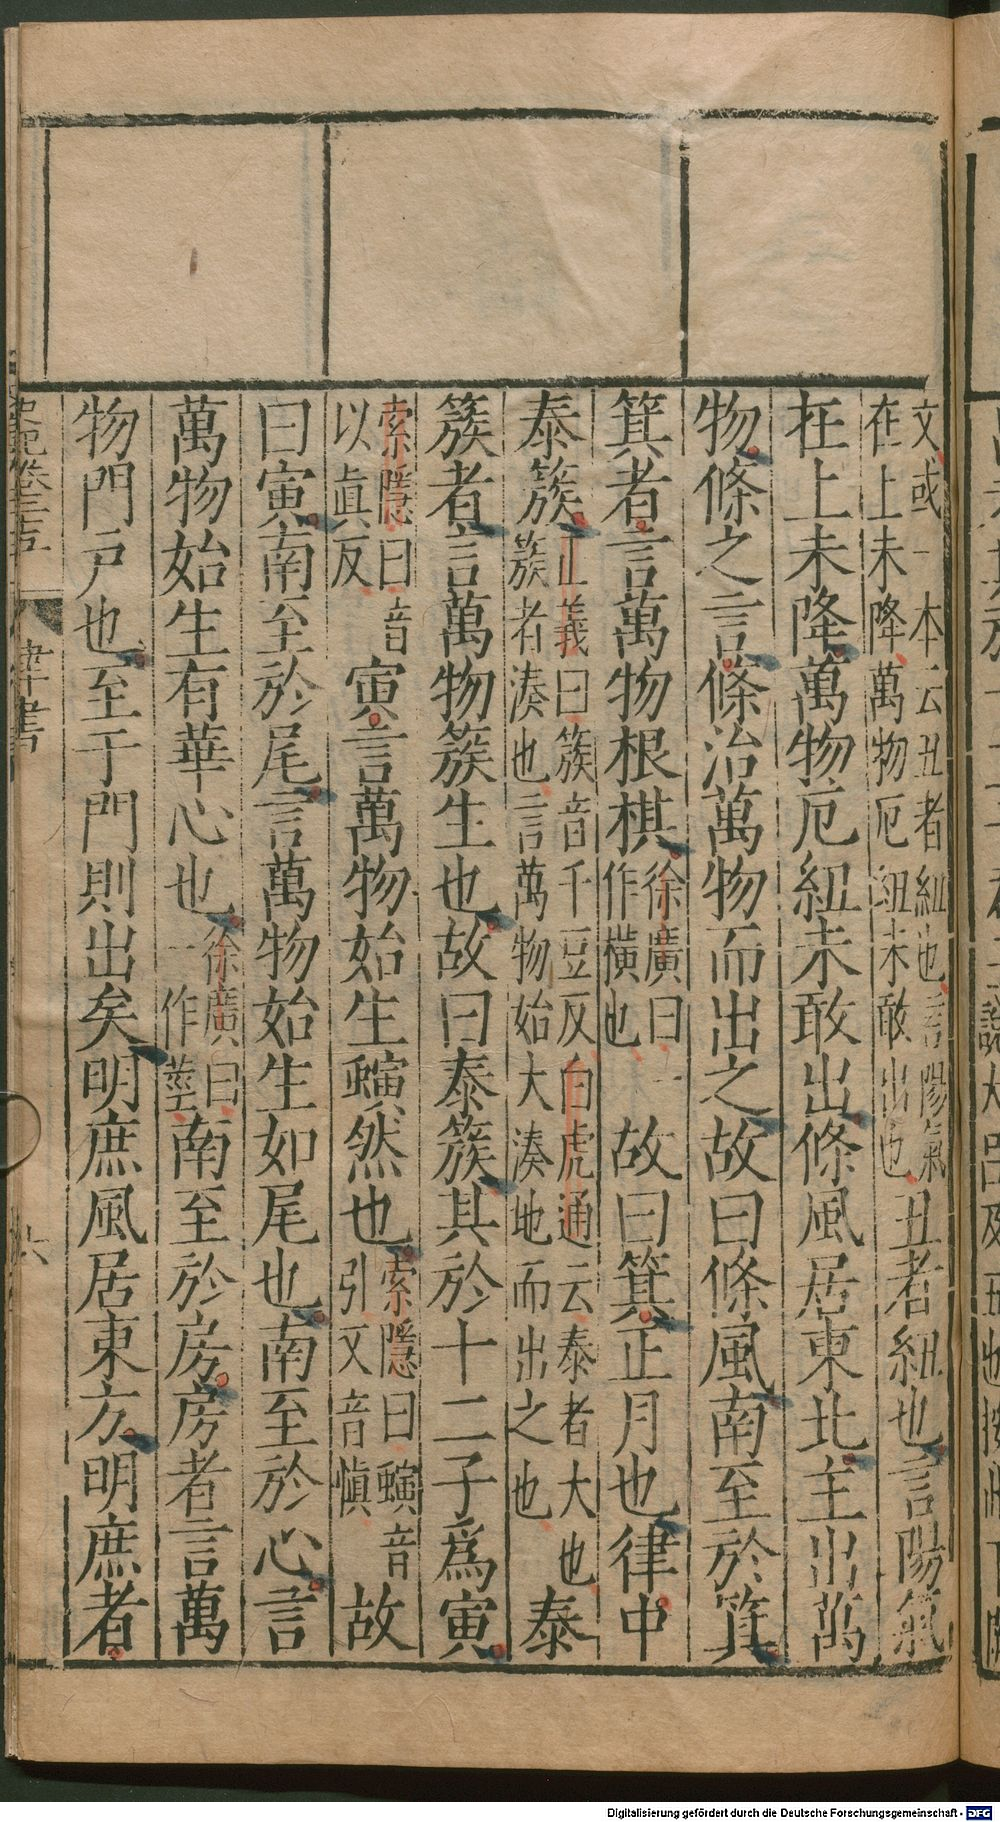 文或一本云丑者紐也言陽氣
在上未降萬物厄紐未敢出也
丑者紐也言陽氣
在上未降萬物厄紐未敢出條風居東北主出萬
物條之言條治萬物而出之故曰條風南至於箕
箕者言萬物根棋
徐廣曰一
作橫也
故曰箕正月也律中
泰簇
正義曰簇音千豆反白虎通云泰者大也
簇者湊也言萬物始大湊地而出之也
泰
簇者言萬物簇生也故曰泰簇其於十二子爲寅
索隱曰音
以眞反
寅言萬物始生螾然也
索隱曰螾音
引又音愼
故
曰寅南至於尾言萬物始生如尾也南至於心言
萬物始生有華心也
徐廣曰
一作莖
南至於房房者言萬
物門戶也至于門則出矣明庶風居東方明庶者
律書
六
Digitalisierung gefördert durch die Deutsche Forschungsgemeinschaft - DFG